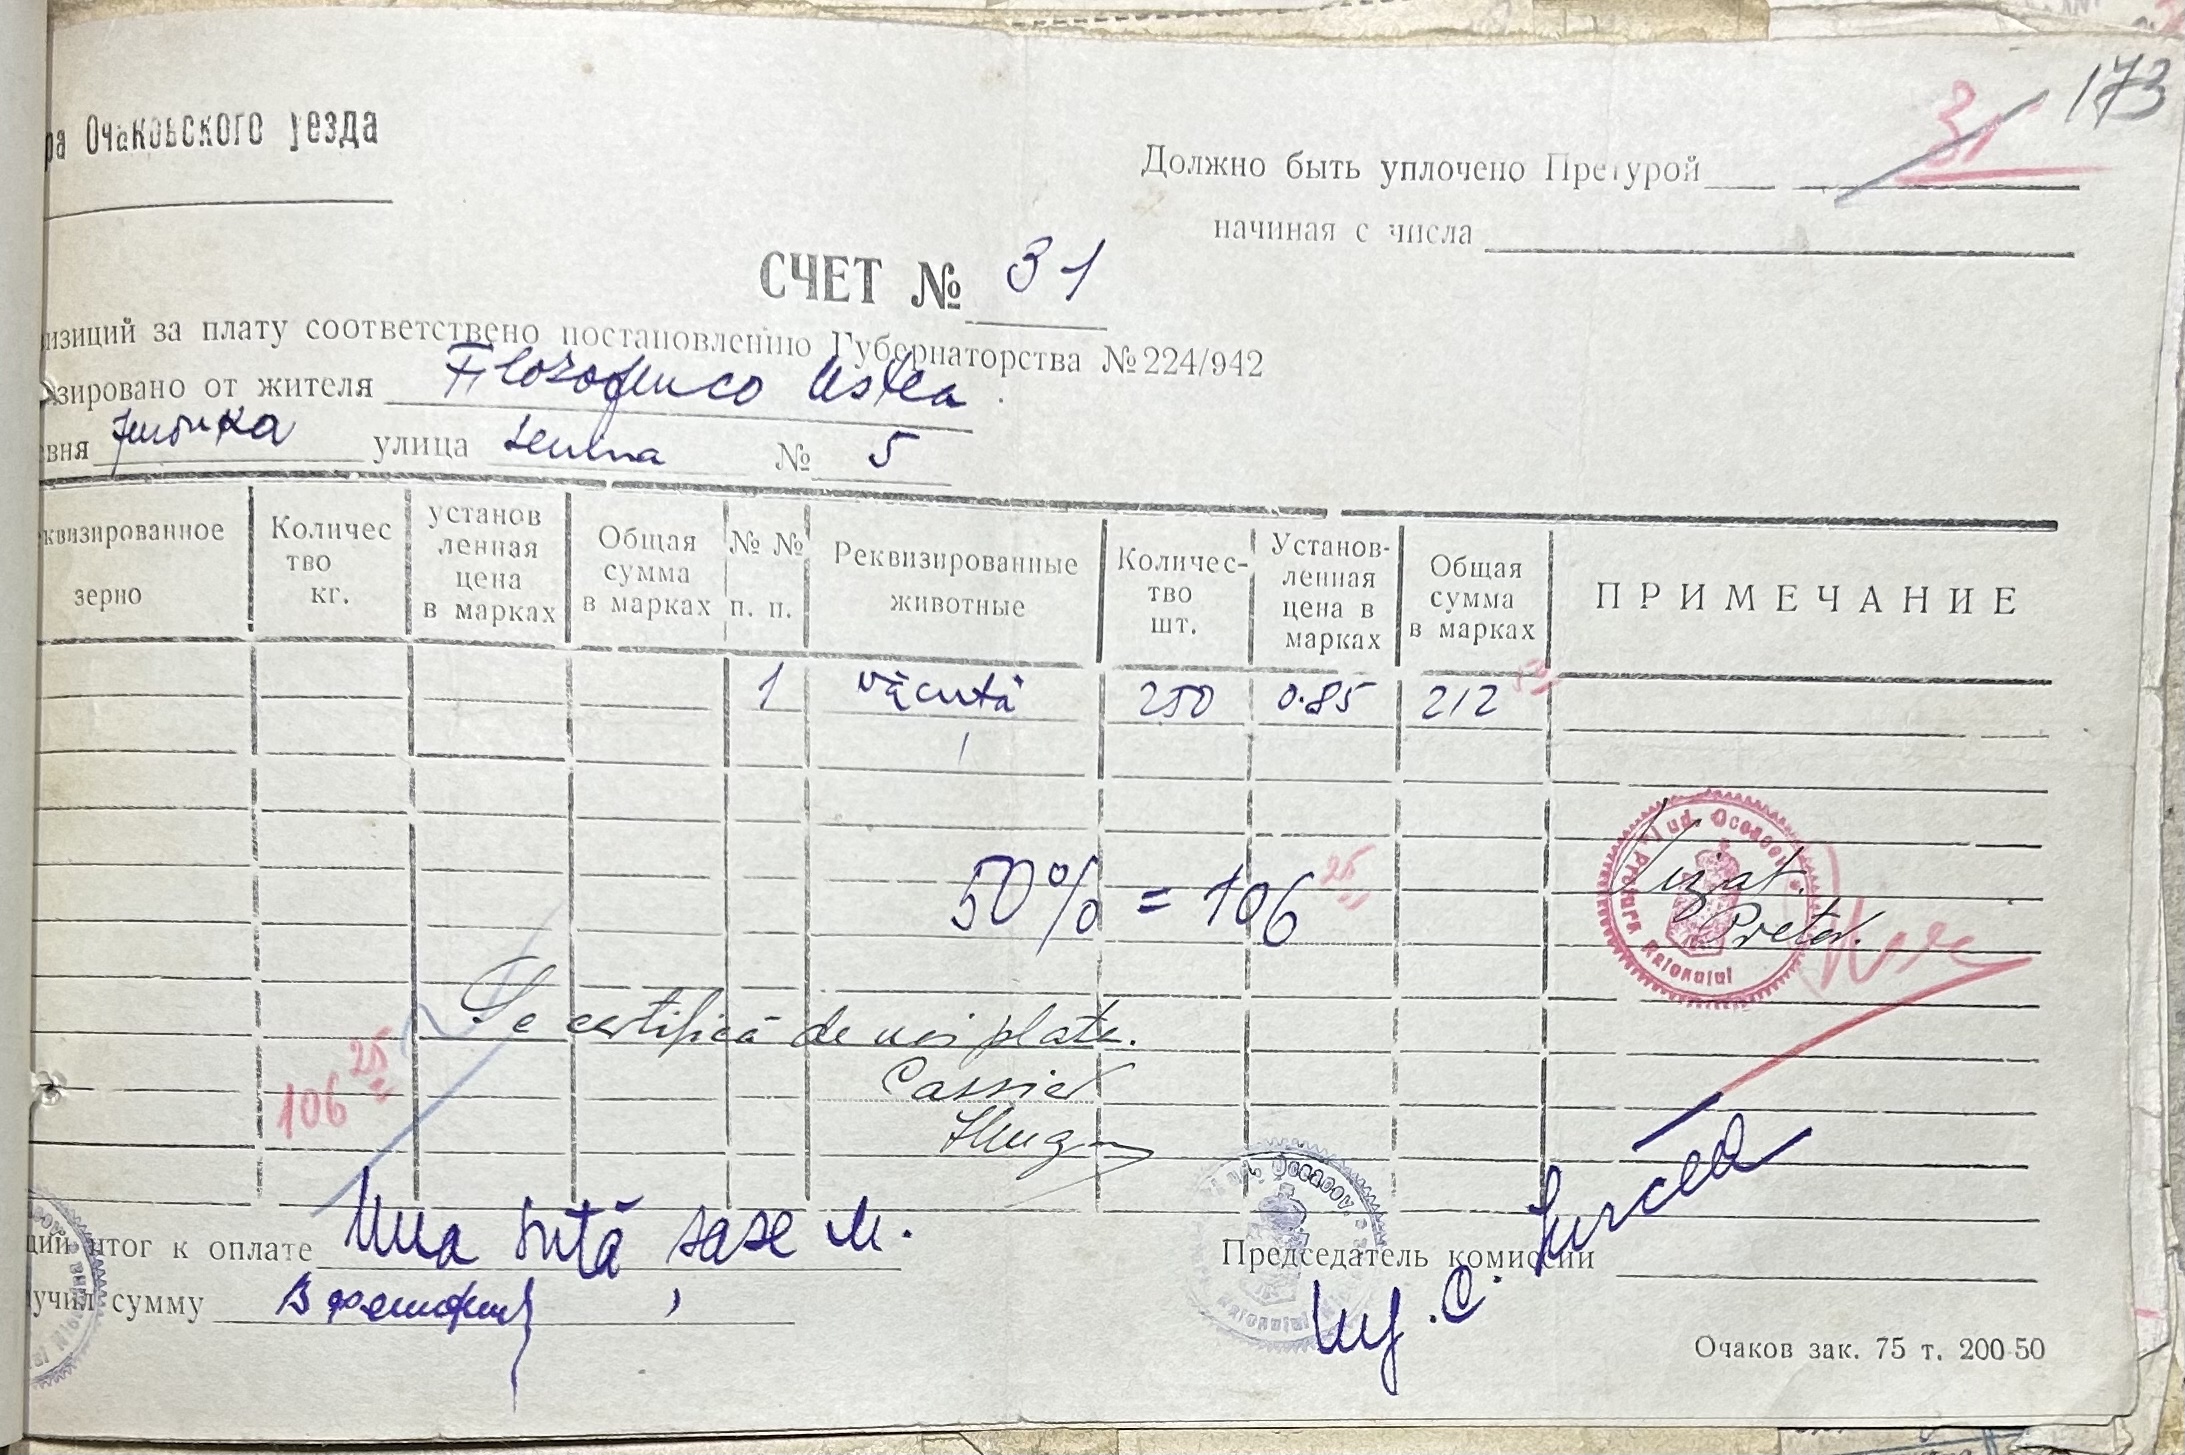 173
31
ра Очаковского уезда
Должно быть уплочено Претурой
начиная с числа
СЧЕТ № 31
изиций за плату соответствено постановлению Губернаторства № 224/942
изировано от жителя Filozofenco Ustea
вня улица Lenina № 5
квизированное зерно
Количес тво кг.
установ ленная цена в марках
Общая сумма в марках
№ № п. п.
Реквизированные животные
Количес- тво шт.
Установ- ленная цена в марках
Общая сумма в марках
ПРИМЕЧАНИЕ
1 văcuță 250 0.85 212
1
50% = 106 25
Vizat.
Pretor.
Se certifică de noi plata.
Cassier
106 25
щий итог к оплате Una sută șase M.
лучил сумму
Председатель комиссии
Очаков зак. 75 т. 200-50